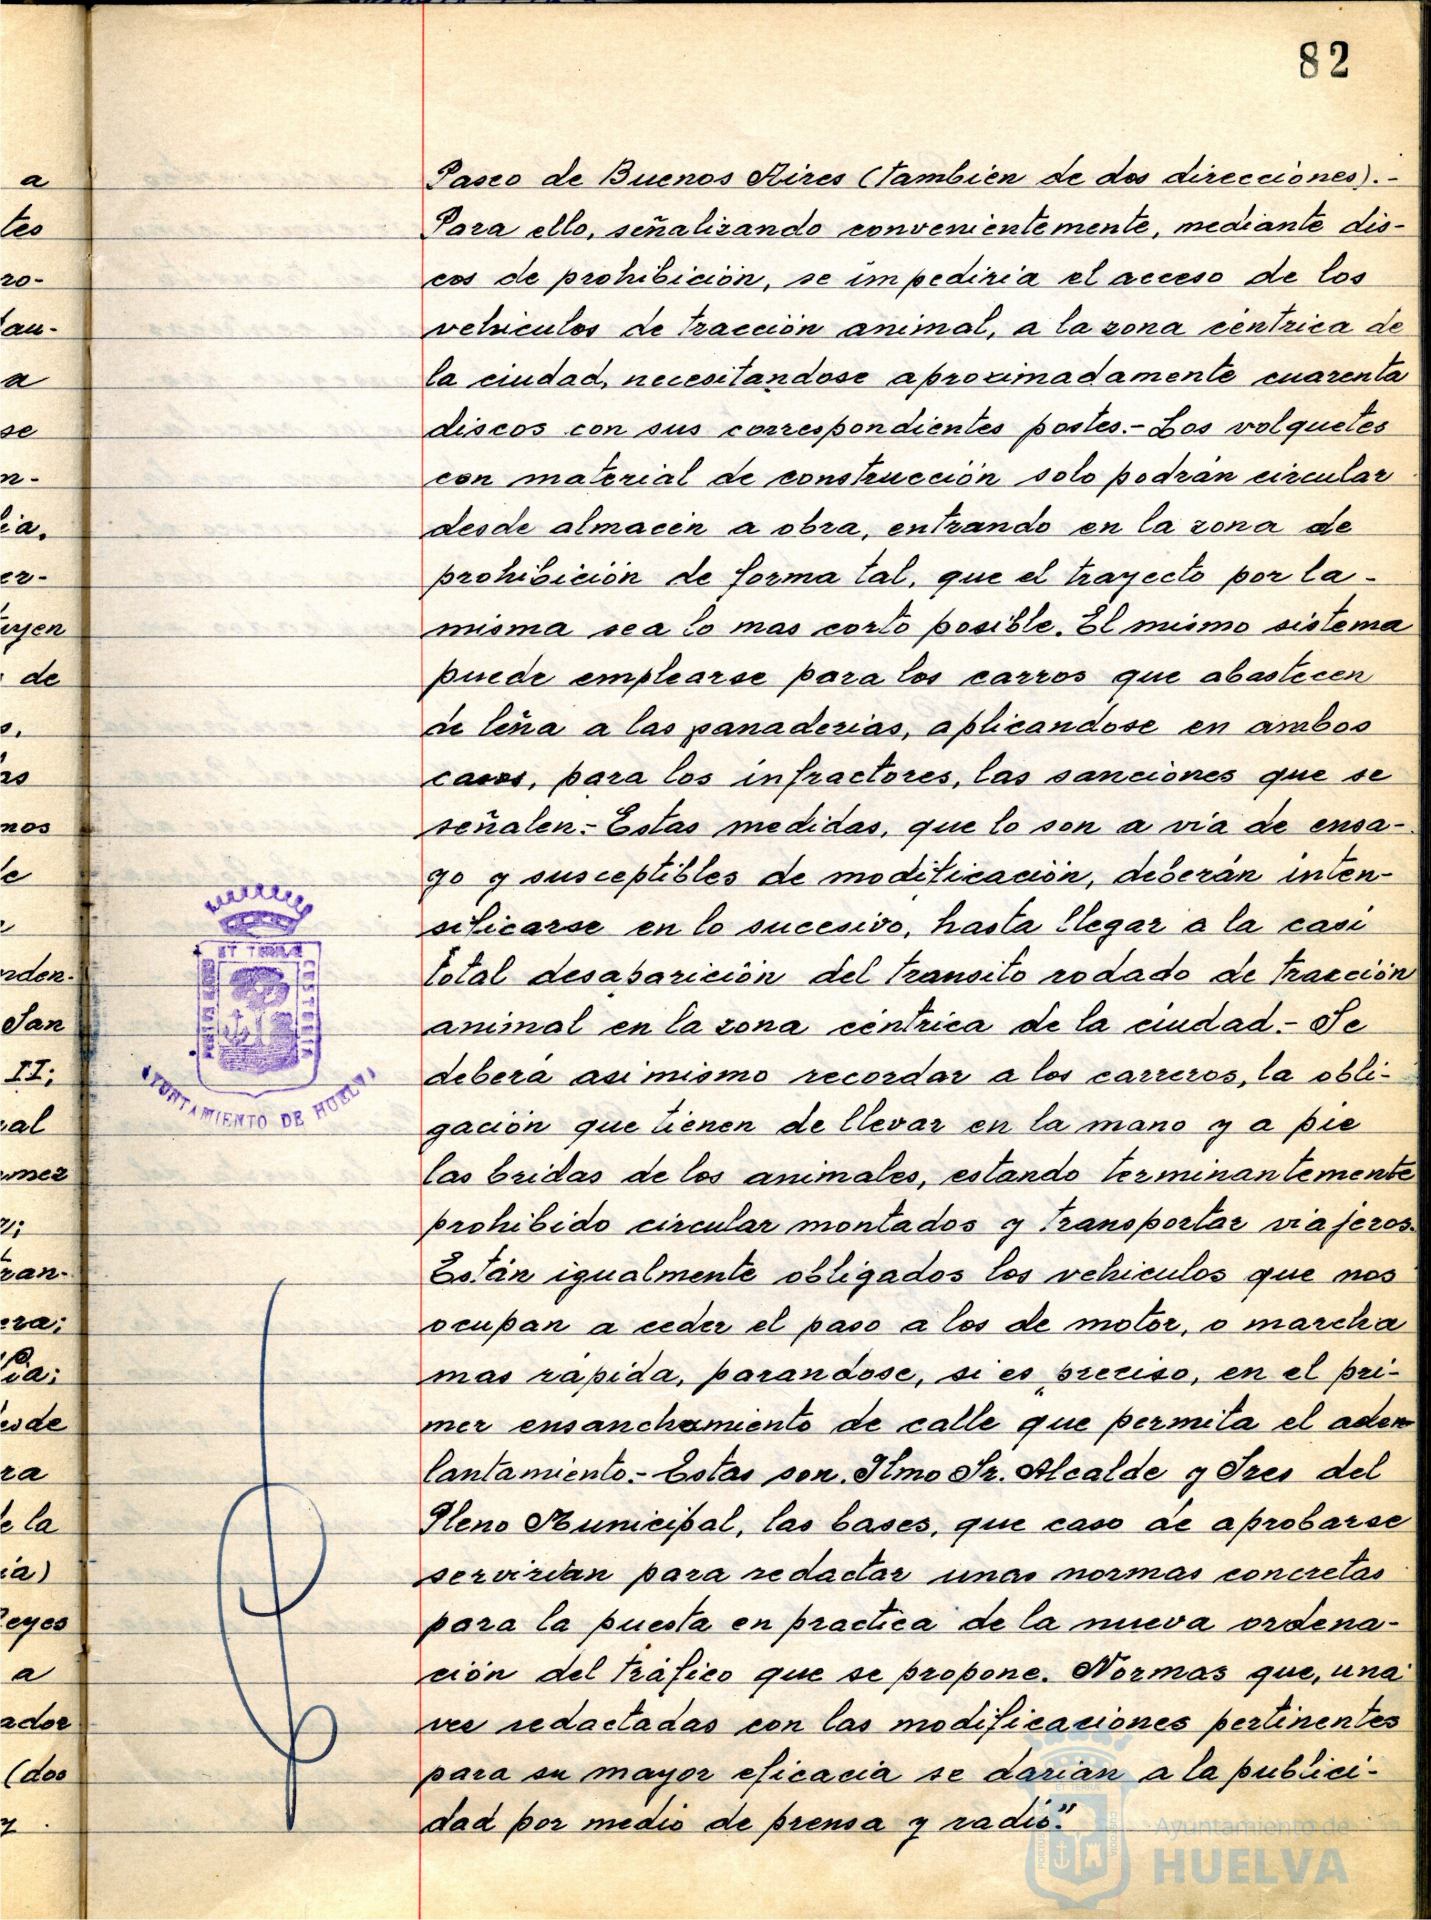 82
Paseo de Buenos Aires (tambien de dos direcciones).-
Para ello, señalizando convenientemente, mediante dis-
cos de prohibición, se impediria el acceso de los
vehiculos de tracción animal, a la zona céntrica de
la ciudad, necesitandose aproximadamente cuarenta
discos con sus correspondientes postes.- Los volquetes
con material de construcción solo podrán circular
desde almacén a obra, entrando en la zona de
prohibición de forma tal, que el trayecto por la-
misma sea lo mas corto posible. El mismo sistema
puede emplearse para los carros que abastecen
de leña a las panaderias, aplicandose en ambos
casos, para los infractores, las sanciones que se
señalen.- Estas medidas, que lo son a via de ensa-
yo y susceptibles de modificación, deberán inten-
sificarse en lo sucesivo, hasta llegar a la casi
total desaparición del transito rodado de tracción
animal en la zona céntrica de la ciudad.- Se
deberá asimismo recordar a los carreros, la obli-
gación que tienen de llevar en la mano y a pie
las bridas de los animales, estando terminantemente
prohibido circular montados y transportar viajeros.
Están igualmente obligados los vehiculos que nos
ocupan a ceder el paso a los de motor, o marcha
mas rápida, parandose, si es preciso, en el pri-
mer ensanchamiento de calle que permita el aden-
lantamiento.- Estas son. Ilmo Sr. Alcalde y Sres del
Pleno Municipal, las bases, que caso de aprobarse
servirian para redactar unas normas concretas
para la puesta en practica de la nueva ordena-
ción del tráfico que se propone. Normas que, una
vez redactadas con las modificaciones pertinentes
para su mayor eficacia se darian a la publici-
dad por medio de prensa y radio."
a
tes
ro-
tau-
a
se
n-
cia,
er-
tuyen
de
s,
as
mos
de
nden-
San
II;
ral
mer
ran-
era;
ia;
esde
ra
de la
ia)
Reyes
a
ador
(dos
y
PORTUS MARIS
ET TERRAE
CUSTODIA
AYUNTAMIENTO DE HUELVA
PORTUS MARIS
ET TERRÆ
CUSTODIA
Ayuntamiento de
HUELVA